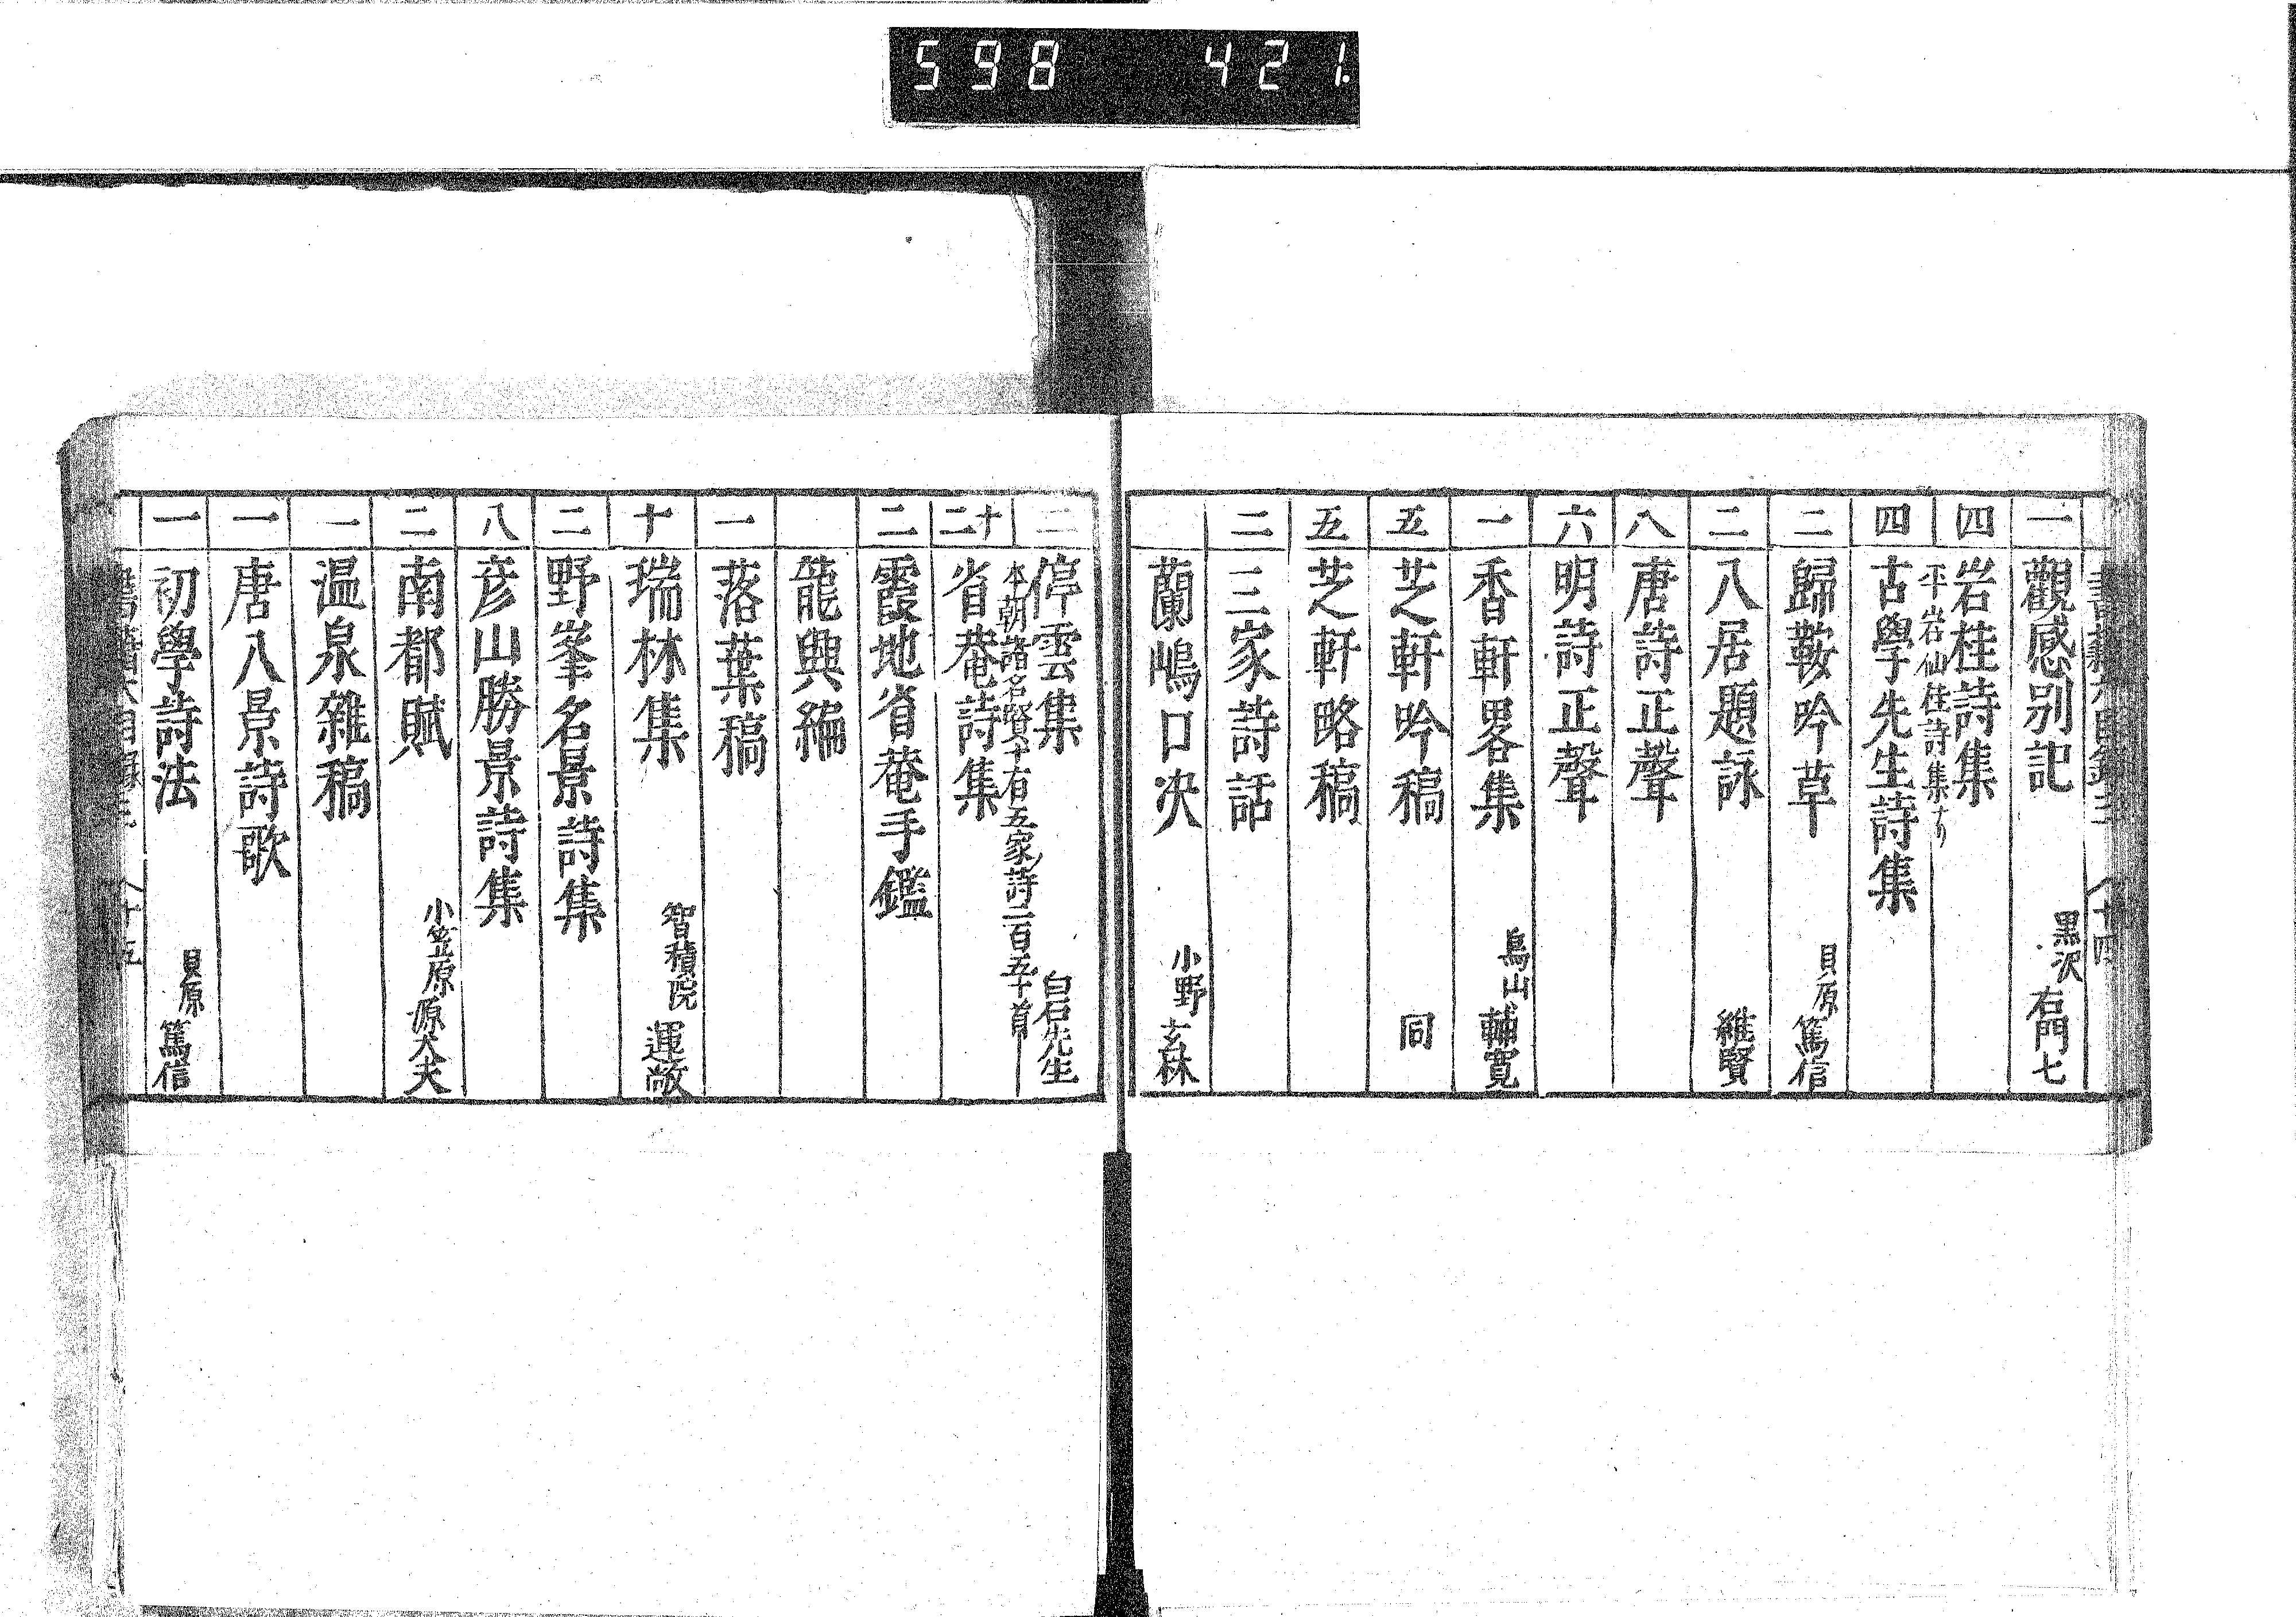 598 421.
一 觀感別記 黒沢 右門七
四 岩桂詩集
平岩仙桂詩集ナリ
四 古學先生詩集
二 歸鞍吟草 貝原 篤信
二 八居題詠 維賢
八 唐詩正聲
六 明詩正聲
一 香軒畧集 鳥山 輔寛
五 芝軒吟稿 同
五 芝軒略稿
三家詩話
蘭嵎口决 小野 玄林
二 停雲集 白石先生
本朝諸名賢十有五家ノ詩二百五十首
十二 省菴詩集
二 霞地省菴手鑑
籠興編
一 落葉稿
十 瑞林集 智積院 運敞
二 野峯名景詩集
八 彦山勝景詩集
二 南都賦 小笠原 源大夫
一 温泉雜稿
一 唐八景詩歌
一 初學詩法 貝原 篤信